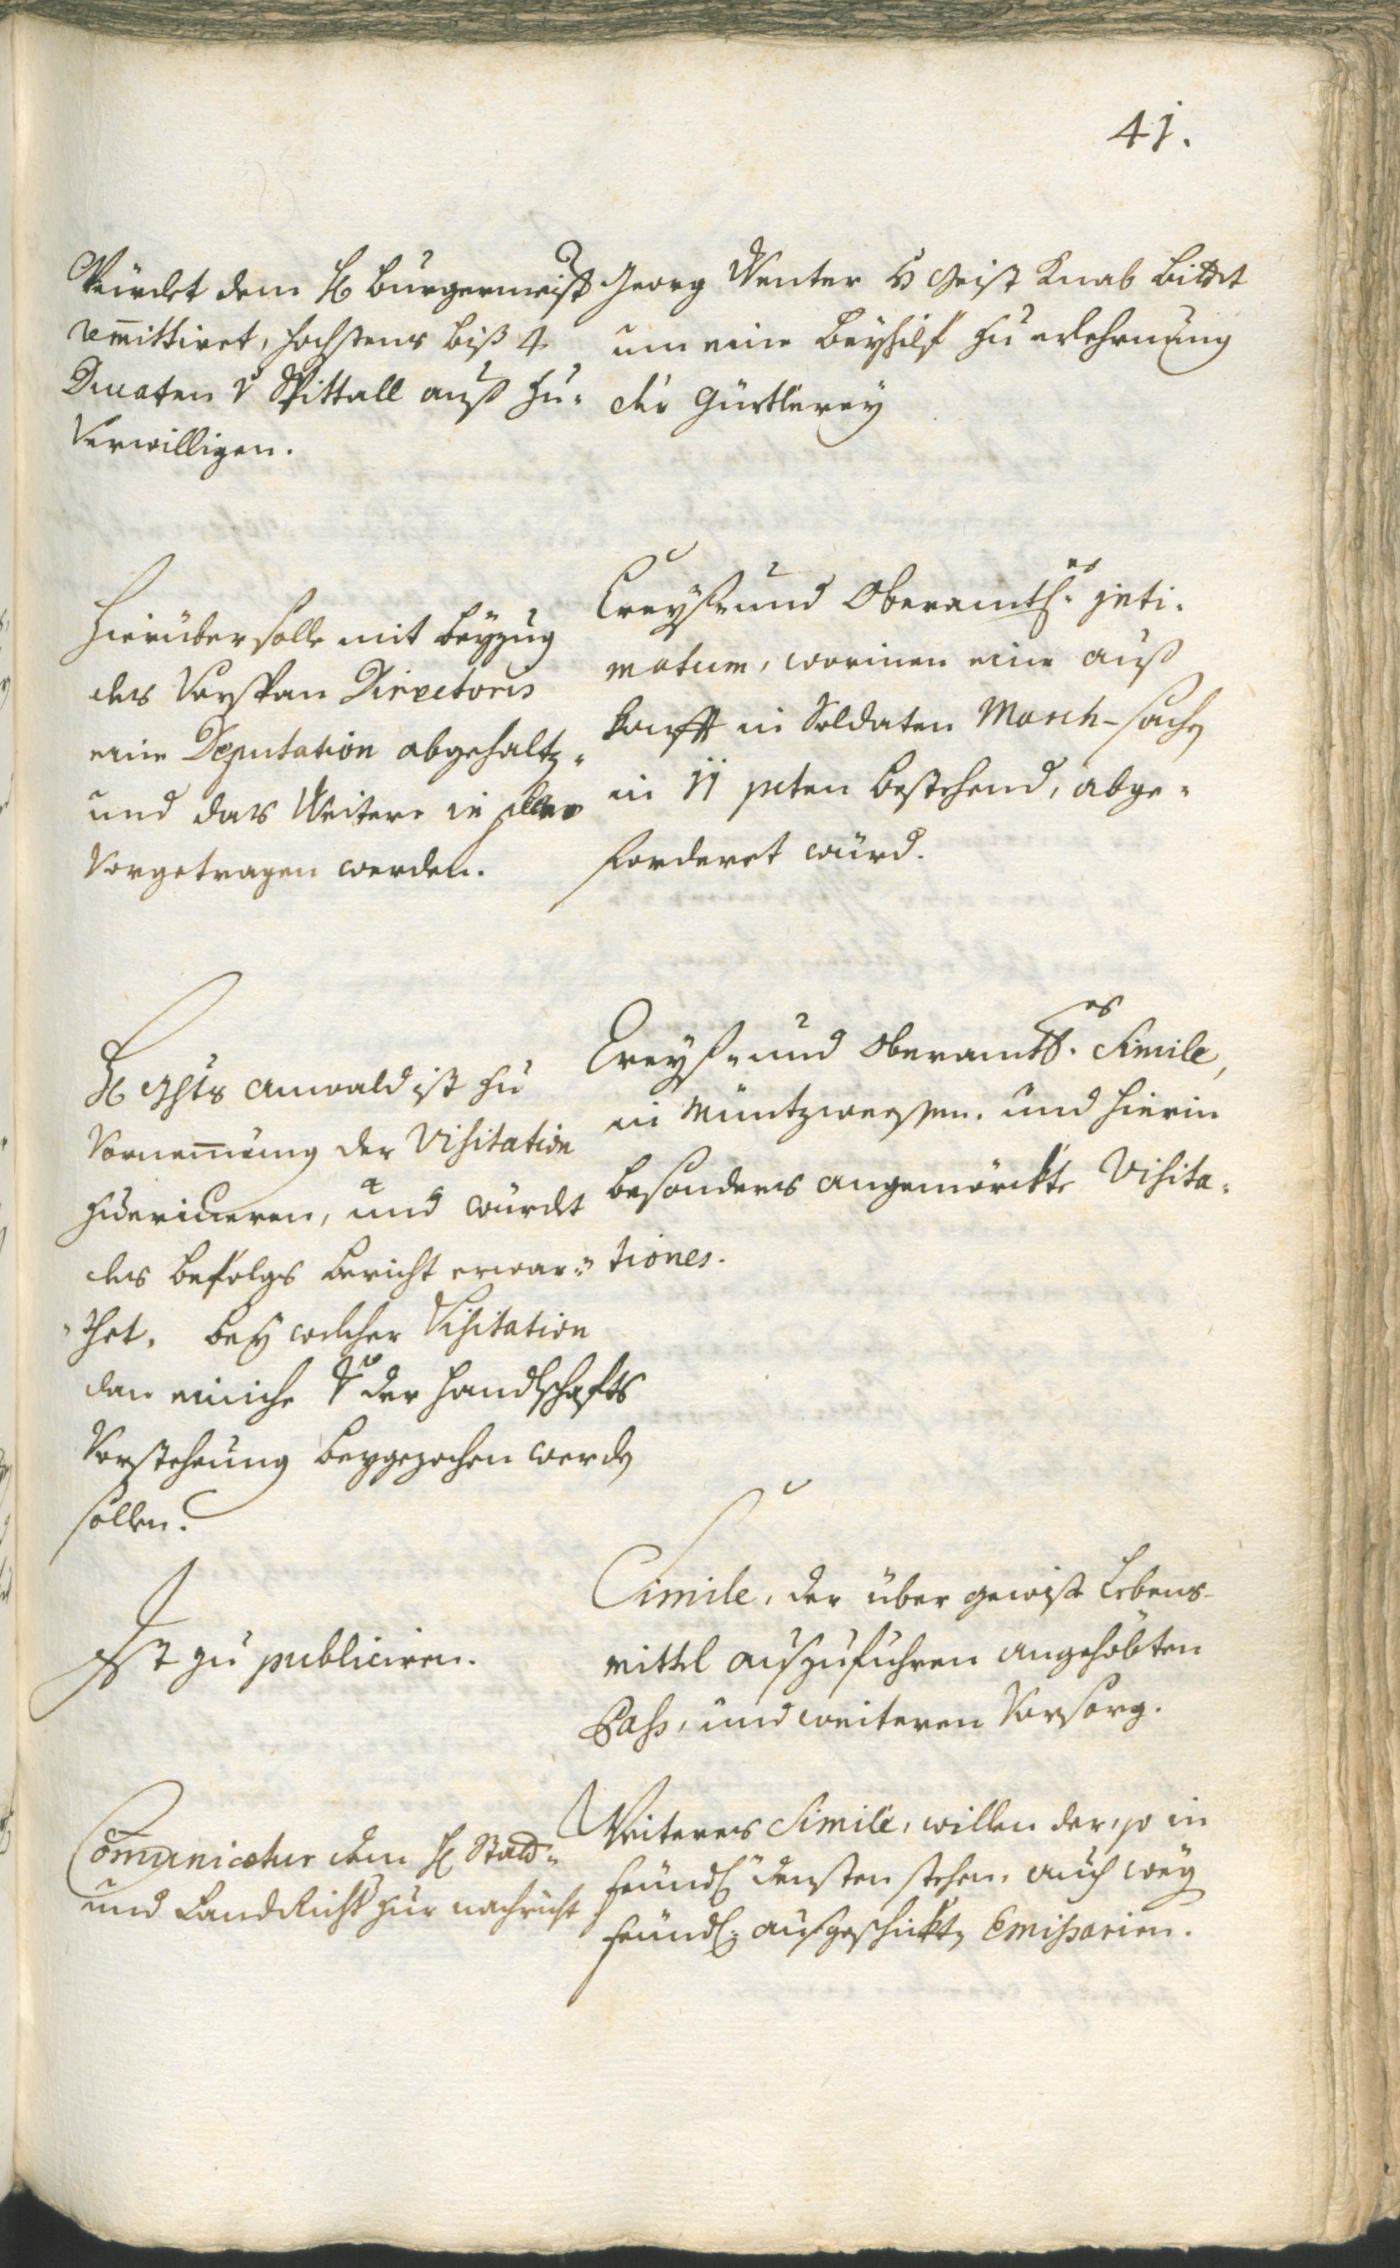 41.
Würdet dem H Burgermeist
remittiret, hochstens biß 4
Ducaten v Spittall auß zu-
verwilligen.
Georg Venter H Geist Knab bittet
um eine Beyhilf zu erlehrnung
der Gürtlerey
Hierüber solle mit beyzug
des Vorspan Directoris
eine Deputation abgehaltẽ,
und das Weitere in pleno
vorgetragen werden.
Creyß- und Oberamtl.es inti-
matum, worinen eine auß
kunfft in Soldaten March-sachẽ
in 11 pcten bestehend, abge-
forderet würd.
H anwald ist zu
Vornemung der Visitation
zuerineren, und würdet
des befolgs bericht erwar-
thet. bey welcher Visitation
dan einiche der Handlschafts
Vorstehung beygezochen werdẽ
sollen.
Creyß- und Oberamtl.es Simile,
in Müntzweßen. und hierin
besonders angemörckte Visita-
tiones.
Ist zu publiciren.
Simile, der über gewiße Lebens-
mittel außzuführen angehöbten
Pass, und weiteren Vorsorg.
Comunicetur dem H Stadt-
und LandRicht zur nachricht
Weiteres Simile, willen der, so in
feindl. densten stehen, auch weg
feindl. außgeschicktẽ Emissarien.